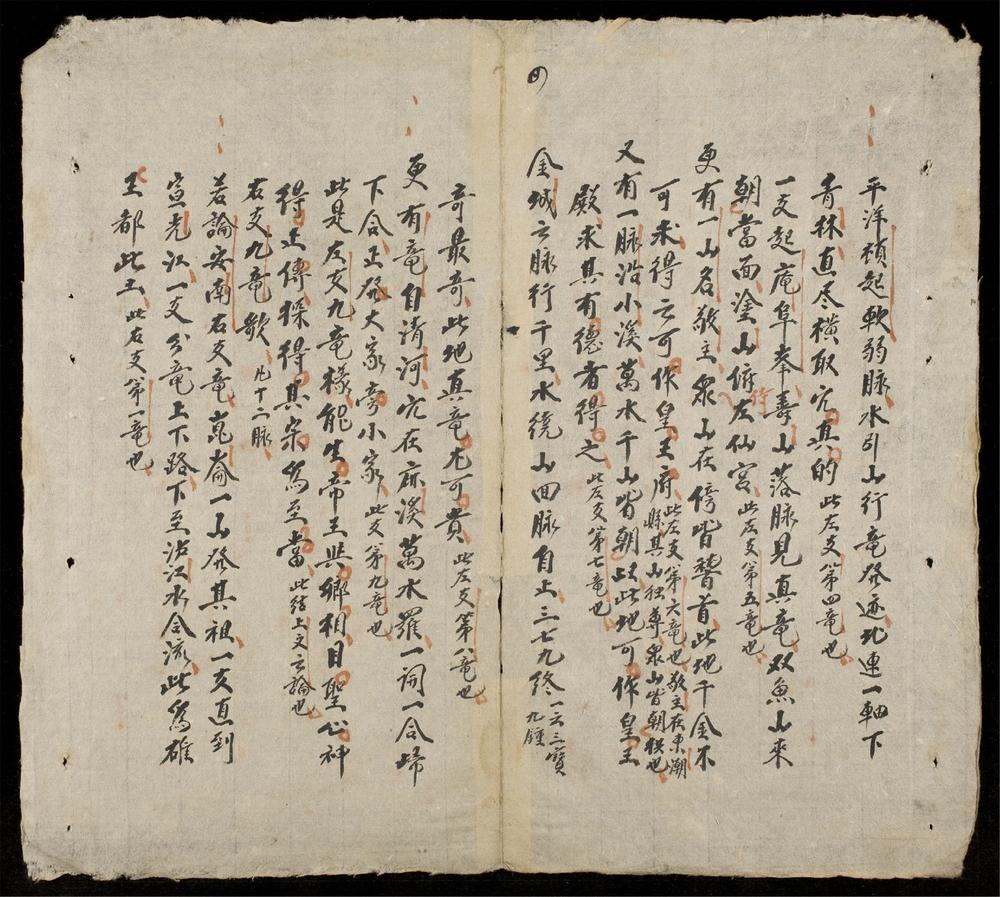 平洋楨起軟弱脉水引山行竜發迹北連一軸下
青林直尽橫取穴真的此左支第四竜也
一支起庵阜奉壽山落脉見真竜双魚山來
朝當面塗山俯左仙宮此左支第五竜也
侍
更有一山名敬主衆山在傍皆聳首此地千金不
可求得云可作皇王府此左支第六竜也敬主在東潮
縣其山独尊衆山皆朝拱也
又有一脉沿小溪萬水千山皆朝以此地可作皇王
殿求其有德者得之此左支第七竜也
四
金城云脉行千里水繞山回脉自上三七九終一云三寶
九鍾
奇最奇此地真竜尤可貴此左支第八竜也
更有竜自清河穴在麻溪萬水羅一詞一合歸
下合正發大家旁小家此支第九竜也
此是左支九竜樣能生帝王與鄉相目聖心神
得正傳探得其宗爲至當此結上文云論也
右支九竜歌 凡十二脉
若論安南右支竜崑崙一山發其祖一支直到
宣光江一支分竜上下路下至沱江水合流此爲雄
王都此王此右支第一竜也